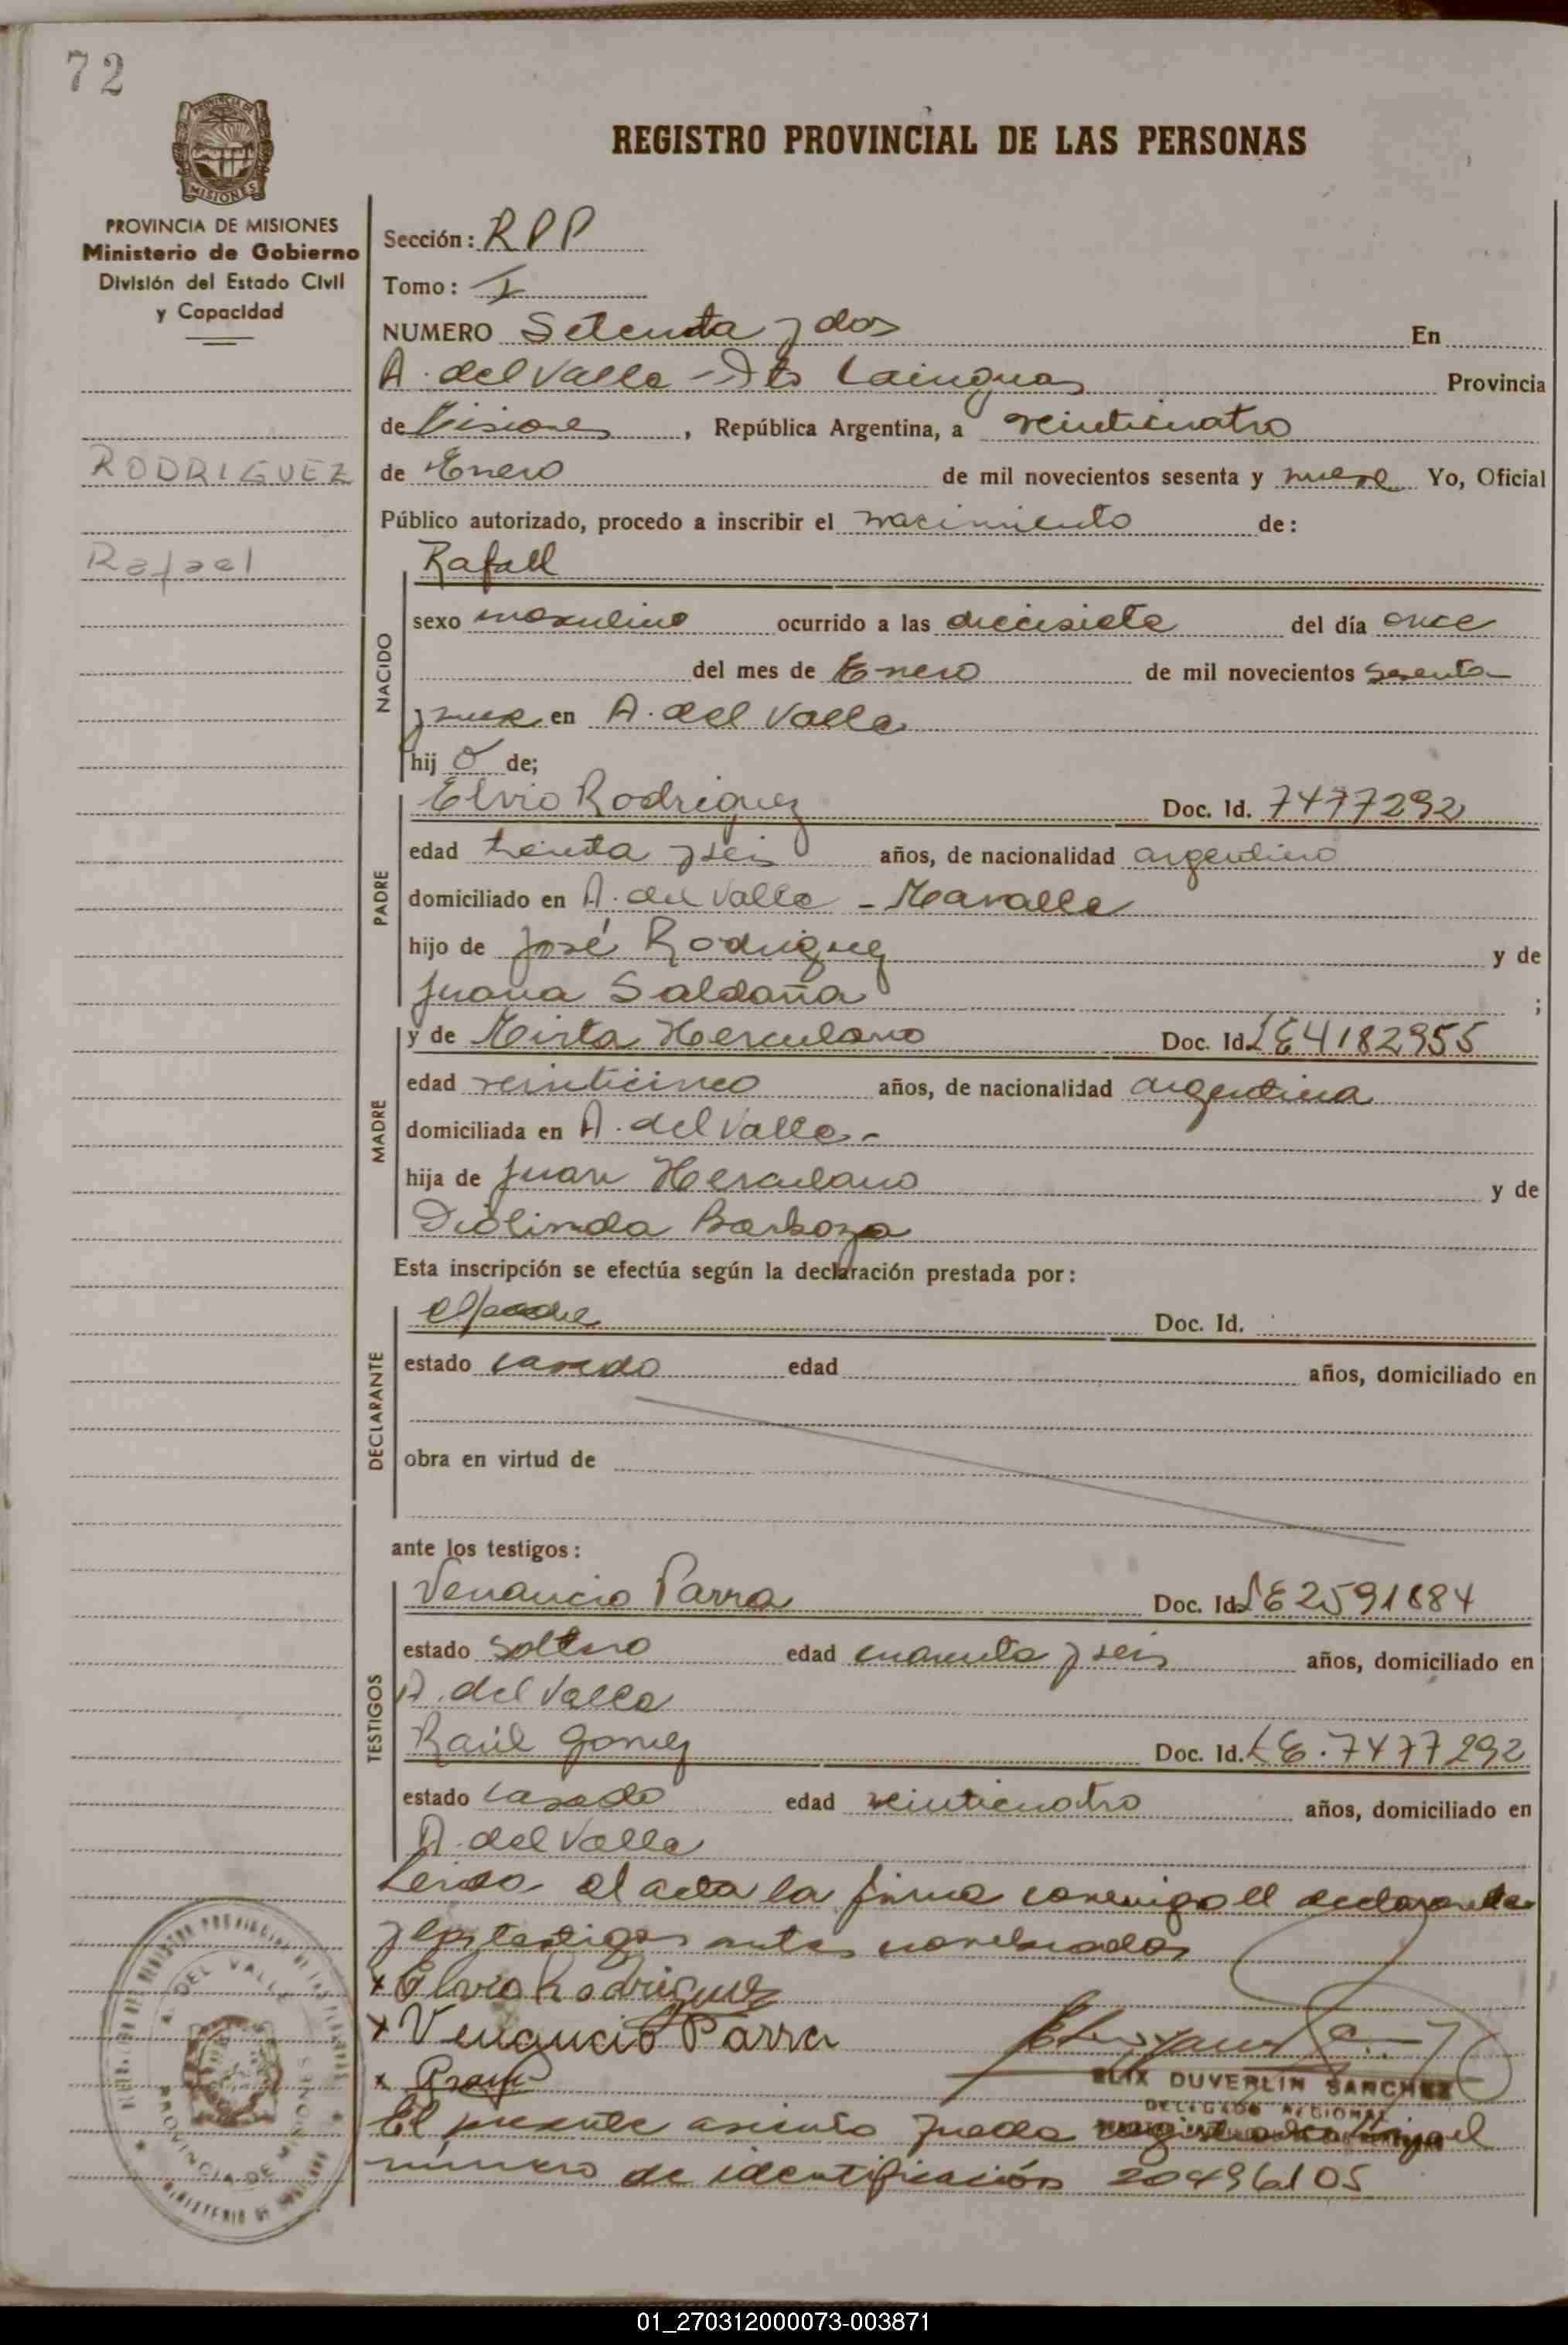 72
PROVINCIA DE MISIONES
Ministerio de Gobierno
División del Estado Civil
y Capacidad
RODRIGUEZ
Rafael
REGISTRO PROVINCIAL DE LAS PERSONAS
Sección: RPP
Tomo: I
NUMERO Setenta y dos En
A. del Valle - Dto Cainguas Provincia
de Misiones, República Argentina, a veinticuatro
de Enero de mil novecientos sesenta y nueve Yo, Oficial
Público autorizado, procedo a inscribir el nacimiento de:
NACIDO
Rafael
sexo masculino ocurrido a las diecisiete del día once
del mes de Enero de mil novecientos sesenta
y nueve en A. del Valle
hij o de;
PADRE
Elvio Rodriguez Doc. Id. 7477292
edad treinta y seis años, de nacionalidad argentino
domiciliado en A. del Valle -
hijo de José Rodriguez y de
Juana Saldaña ;
MADRE
y de Mirta Herculano Doc. Id. LE4182955
edad veinticinco años, de nacionalidad argentina
domiciliada en A. del Valle -
hija de Juan Herculano y de
Diolinda Barboza
Esta inscripción se efectúa según la declaración prestada por:
DECLARANTE
el padre Doc. Id.
estado casado edad años, domiciliado en
obra en virtud de
ante los testigos:
TESTIGOS
Venancio Parra Doc. Id. LE2591884
estado soltero edad cuarenta y seis años, domiciliado en
A. del Valle
Raúl Gomez Doc. Id. LE. 7477292
estado casado edad veinticuatro años, domiciliado en
A. del Valle
Leida el acta la firma conmigo el declarante
y los testigos antes nombrados
x Elvio Rodriguez
x Venancio Parra
x
ELIX DUVERLIN SANCHEZ
DELEGADO REGIONAL
El presente asiento queda registrado bajo el
número de identificación 20496105
A. DEL VALLE
PROVINCIA DE MISIONES
01_270312000073-003871